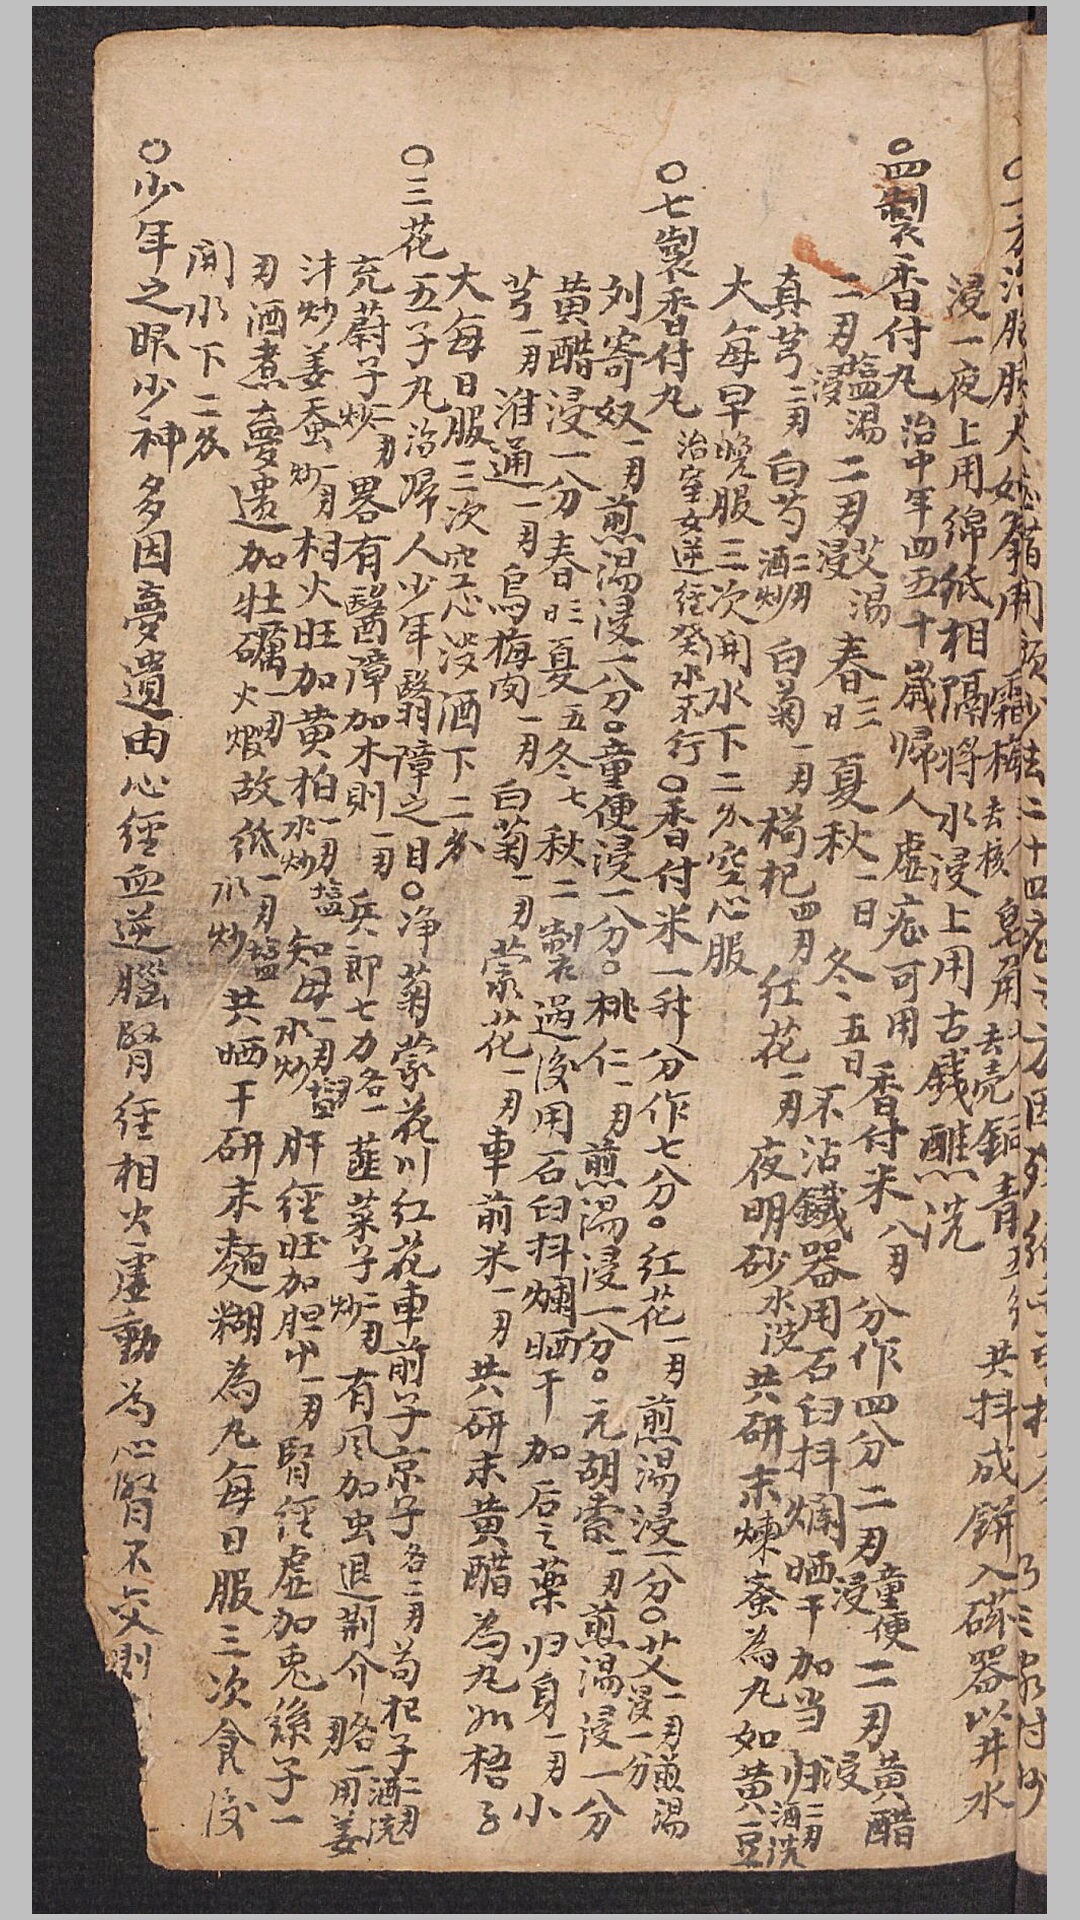 浸一夜上用綿紙相隔將水浸上用古錢醮洗
〇四製香付丸 治中年四五十歲歸人虛症可用 香付米八刄 分作四分二刄童便浸二刄黃醋浸
二刄塩湯浸 二刄艾湯浸 春三日 夏秋一日 冬五日 不沾鐵器用石臼抖爛晒干加当归二刄酒洗
真芎二刄 白芍二刄酒炒 白菊一刄 枸杞四刄 紅花一刄 夜明砂水洗 共研末煉蜜為丸如黃豆
大每早晚服三次開水下二分空心服
〇七製香付丸 治室女逆經癸水不行 〇香付米一升分作七分。紅花一刄煎湯浸一分〇艾一刄煎湯浸一分
列寄奴一刄煎湯浸一分〇童便浸一分。桃仁一刄煎湯浸一分。元胡索一刄煎湯浸一分
黃醋浸一分 春三日 夏五 冬七 秋二 製過後用石臼抖爛晒干 加后之藥 归身一刄 小
芎一刄 淮通一刄 烏梅肉一刄 白菊一刄 蒙花一刄 車前米一刄 共研末黃醋為丸如梧子
大每日服三次空心淡酒下二分
〇三花五子丸 治歸人少年翳障之目〇净菊蒙花川紅花車前子京子各二刄 苟杞子二刄酒洗
充蔚子二刄炒 畧有醫障加木則一刄 兵郎七力各一刄 韮菜子二刄炒 有風加虫退荆介各一刄用姜
汁炒姜蚕一刄炒 相火旺加黃柏一刄塩水炒 知母一刄塩水炒 肝經旺加胆中一刄腎經虛加兎絲子一
刄酒煮夢遺加牡礪一刄火煆故紙一刄塩水炒 共晒干研末麵糊為丸每日服三次食後
開水下二分
〇少年之眼少神多因夢遺由心經血逆腦腎經相火虛動為心腎不交則